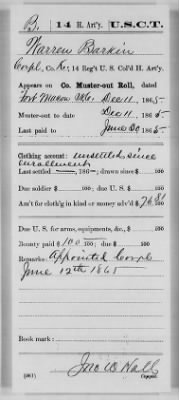 B. 14 H. Art'y. U.S.C.T.
Warren Barkin
Corpl, Co. K, 14 Reg't U. S. Col'd H. Art'y.
Appears on Co. Muster-out Roll, dated
Fort Macon N.C. Dec 11, 1865.
Muster-out to Dec 11, 1865.
Last paid to June 30, 1865.
Clothing account: unsettled since
enrollment
Last settled , 186 ; drawn since $ 100
Due soldier $ 100; due U. S. $ 100
Am't for clothing in kind or money adv'd $ 76 81 100
Due U. S. for arms, equipments, &c., $ 100
Bounty paid $ 100 100; due $ 100
Remarks: Appointed Corpl
June 12th 1865
Book mark:
Jno W Hall
(361) Copyist.